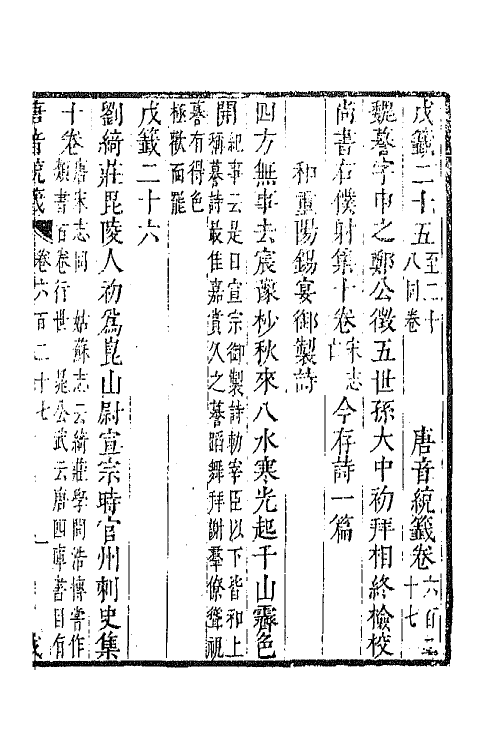 戊籤二十五至二十八同卷　唐音統籤卷六百二十七
魏謩字申之鄭公徵五世孫大中初拜相終檢校
尚書右僕射集十卷宋志今存詩一篇
和重陽錫宴御製詩
四方無事去宸豫杪秋來八水寒光起千山霽色
開紀事云是日宣宗御製詩勑宰臣以下皆和上
稱謩詩最佳嘉賞久之謩蹈舞拜謝羣僚聳視
謩有得色
極歡而罷
戊籤二十六
劉綺莊毘陵人初爲崑山尉宣宗時官州刺史集
十卷唐宋志同　姑蘇志云綺莊學問浩博嘗作
類書百卷行世　晁公武云唐四庫書目有
唐音統籤　卷六百二十七　一